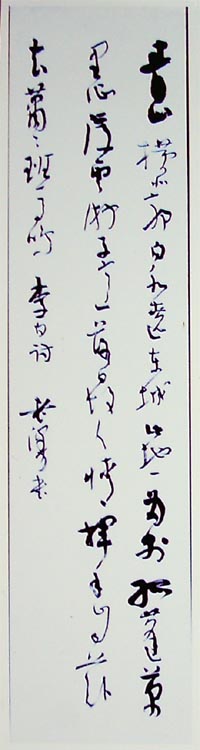 青山橫北郭白水遶東城此地一為別孤蓬萬
里征浮雲游子意落日故人情揮手自茲
去蕭〻班馬鳴 李白詩 書